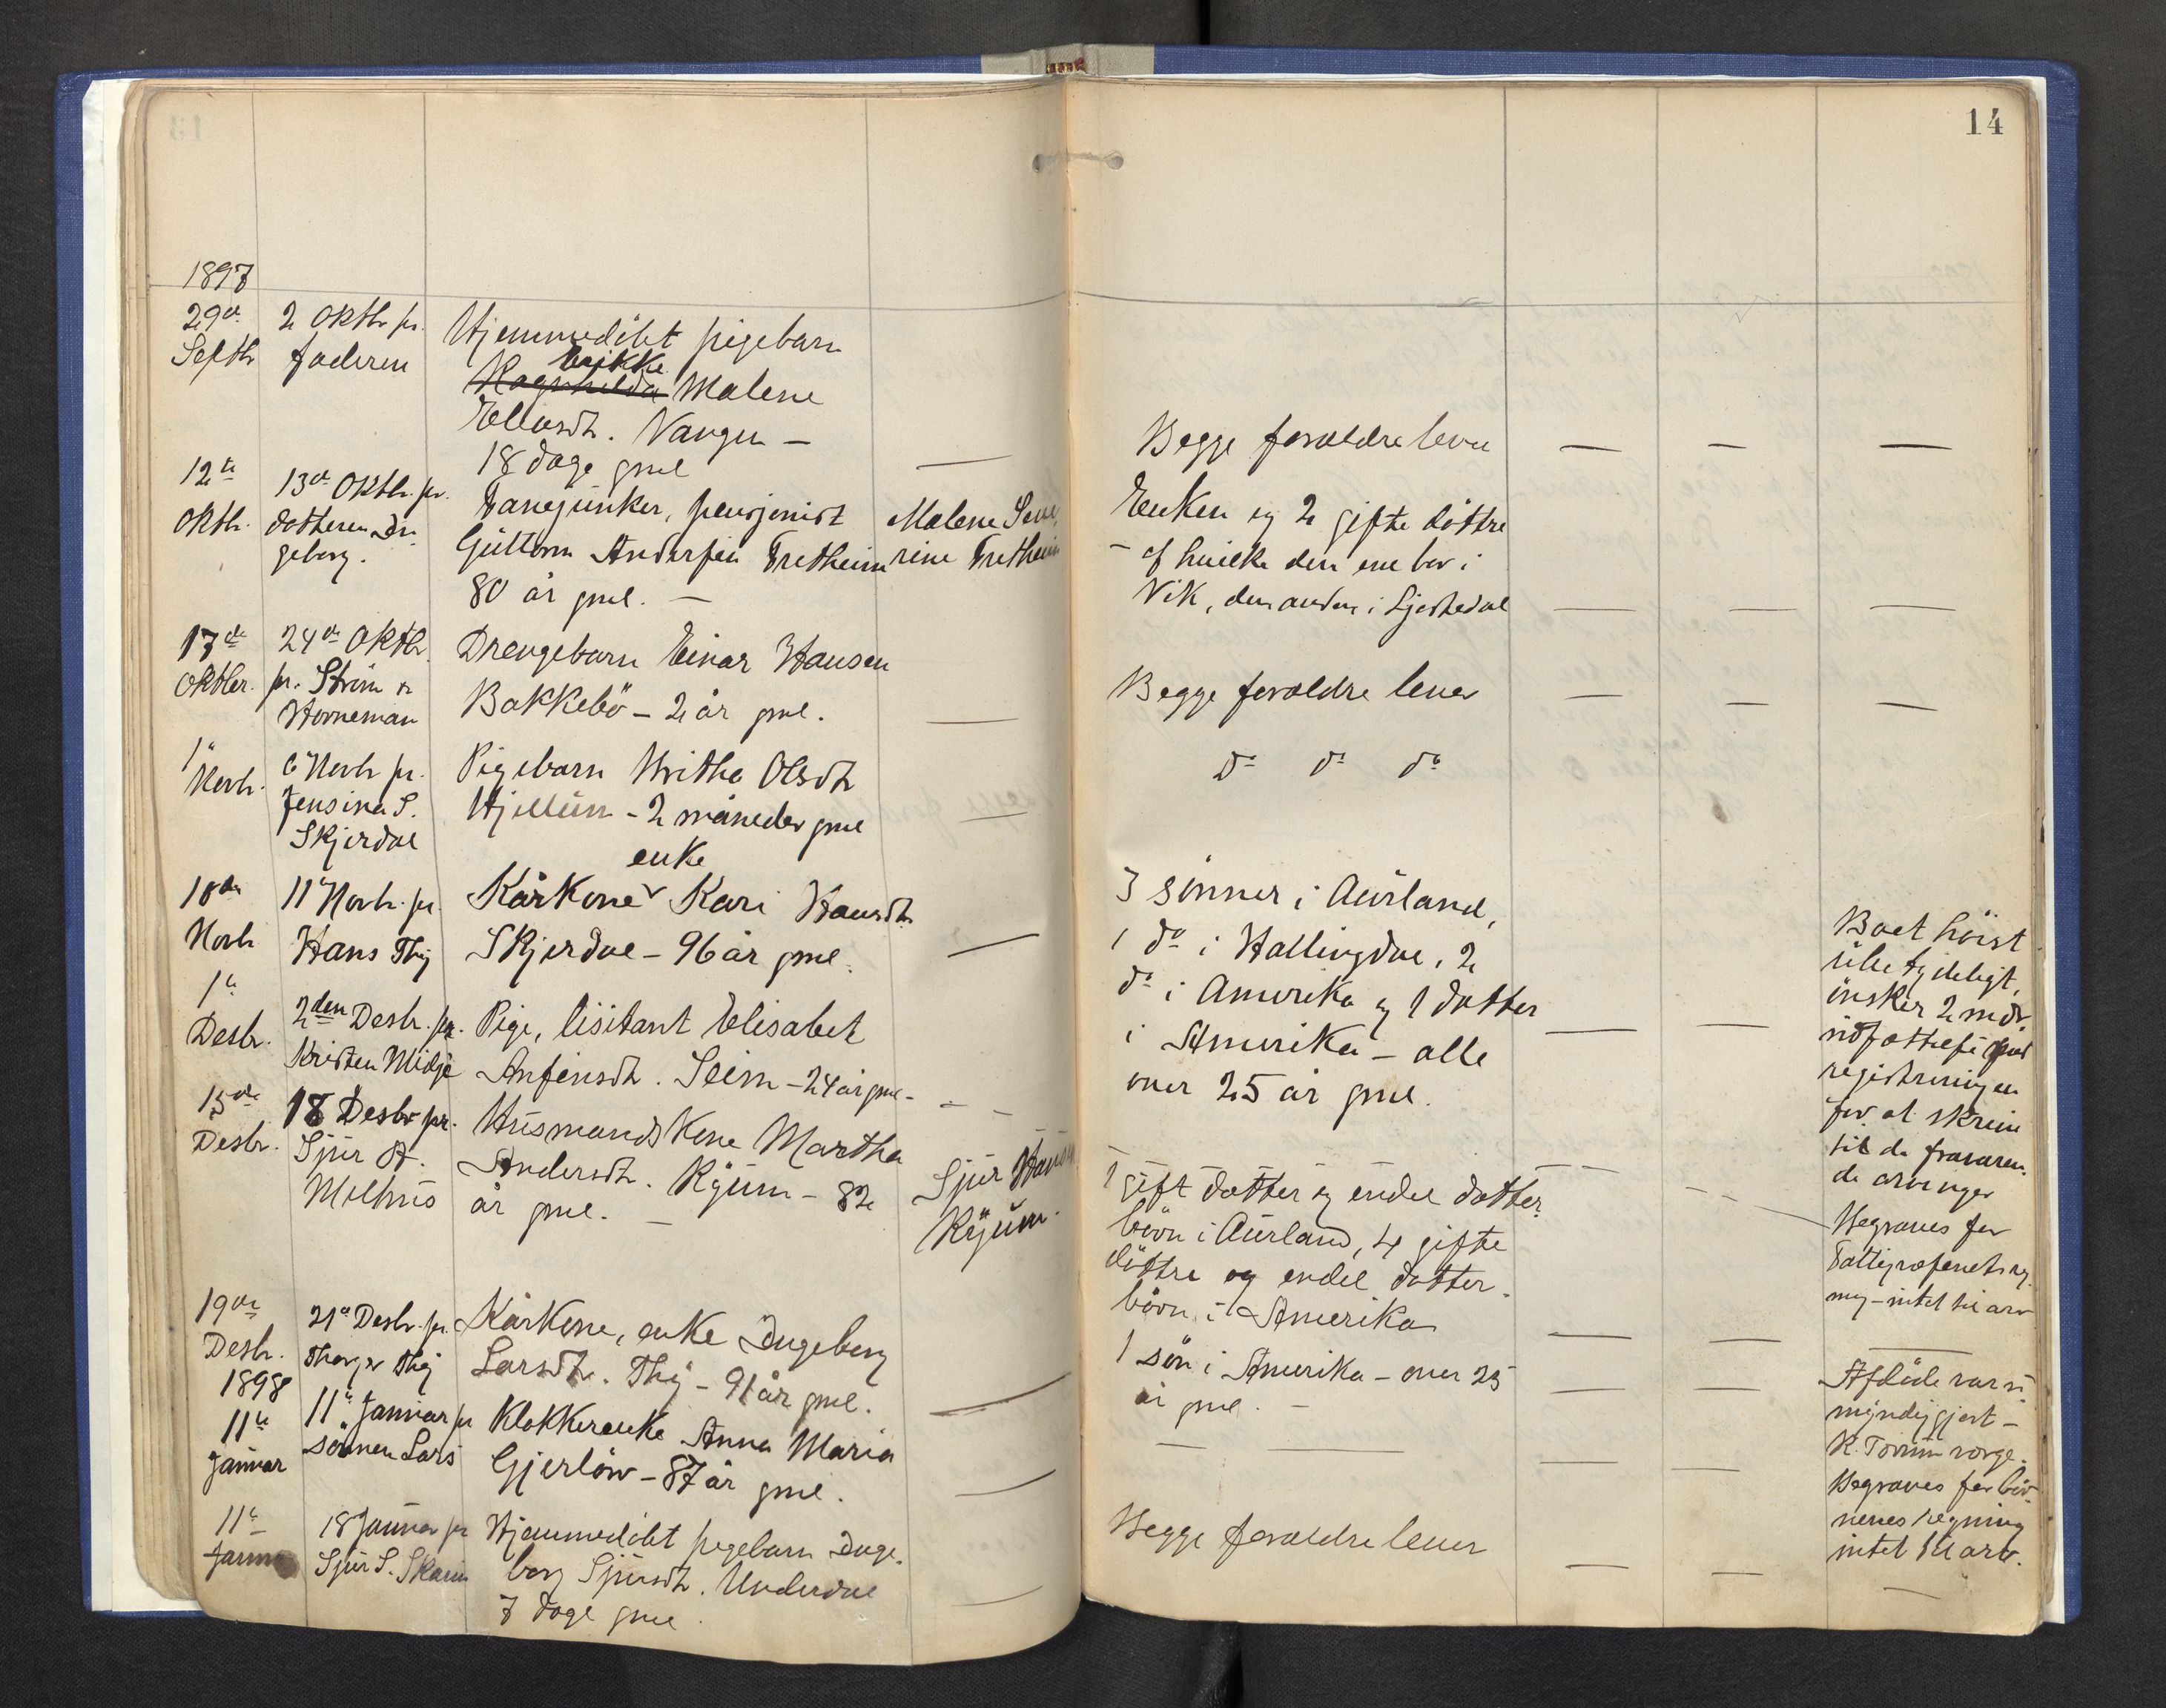 14
1897
29de
Septbr
2 Oktbr pr.
faderen
Hjemmedöbt pigebarn
Brikke
Malene
Eliasdtr. Vangen —
18 dage gml
—
Begge forældre lever
— — —
12te
Oktbr.
13de Oktbr. pr.
datteren In-
geborg.
Fanejunker, pensjonist
Guttorm Andersen Fretheim
80 år gml. —
Malene Seve
rine Fretheim
Enken og 2 gifte döttre
— af hvilke den ene bor i
Vik, den anden i Ljosthedal
— — —
17de
Oktber.
24de Oktbr.
pr. Ström &
Horneman
Drengebarn Einar Hansen
Bakkebö — 2 år gml.
—
Begge forældre lever
— — —
1te
Novbr.
6te Novbr pr.
Jensina S.
Skjerdal
Pigebarn Britha Olsdtr
Hjellum — 2 måneder gml
—
Do do do
10de
Novbr
11te Novbr. pr.
Hans Thy
enke
Kårkone Kari Hansdtr.
Skjerdal — 96 år gml.
—
3 sönner i Aurland,
1 do i Hallingdal, 2
do i Amerika og 1 datter
i Amerika — alle
over 25 år gml.
— —
Boet höist
ubetydeligt,
önsker 2 mdr.
udsættelse med
registreringen
for at skrive
til de fraværen-
de arvinger
1te
Desbr.
2den Desbr. pr.
Kristen Midje
Pige, lisitant Elisabet
Anfinsdtr. Seim — 24 år gml —
— —
Begraves for
Fattigvæsenets reg-
ning — intet til arv
15de
Desbr.
18 Desbr pr.
Sjur A.
Melhus
Husmandskone Martha
Andersdtr. Ryum — 82
år gml. —
Sjur Hansen
Ryum.
1 gift datter og endel datter-
börn i Aurland, 4 gifte
döttre og endel datter-
börn i Amerika
— — —
19de
Desbr.
21de Desbr. pr.
Thorger Thy
Kårkone, enke Ingeborg
Larsdtr. Thy — 91 år gml.
—
1 sön i Amerika — over 25
år gml. —
— —
Afdöde var u-
myndiggjort —
K. Torvim verge.
1898
11te
Januar
11te Januar pr
sönnen Lars
Klokkerenke Anna Maria
Gjerlöw — 87 år gml.
—
— —
— —
Begraves for bör-
nenes regning
intet til arv.
11te
18 Januar pr
Sjur S. Skaim
Hjemmedöbt pigebarn Inge-
borg Sjursdtr. Underdal
7 dage gml.
—
Begge forældre lever
— — —